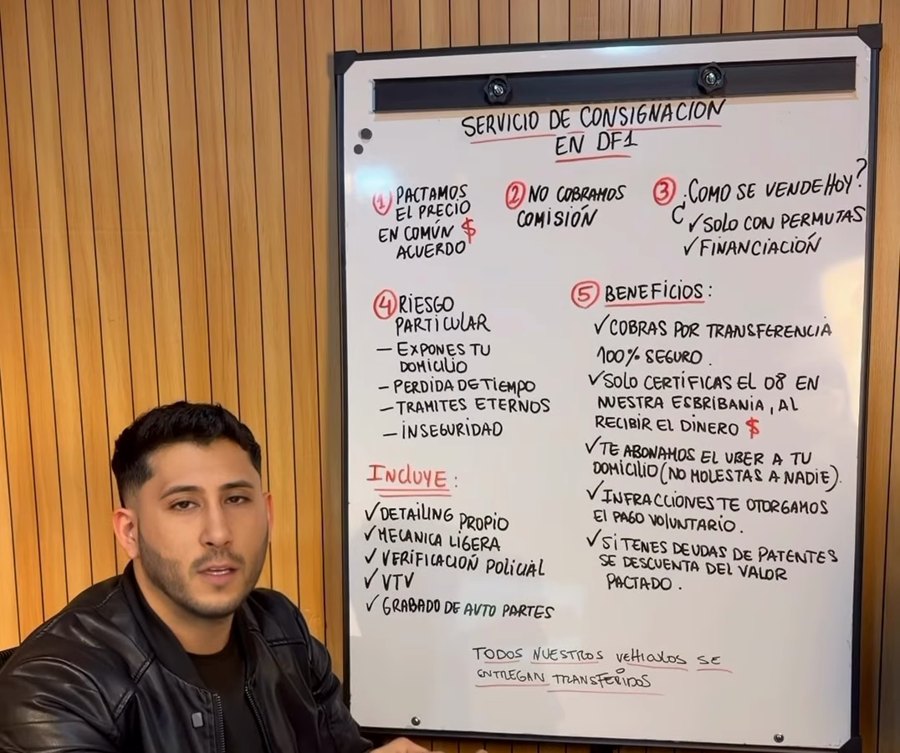 SERVICIO DE CONSIGNACION
EN DF1
1 PACTAMOS
EL PRECIO
EN COMÚN $
ACUERDO
2 NO COBRAMOS
COMISIÓN
3 ¿COMO SE VENDE HOY?
✓ SOLO CON PERMUTAS
✓ FINANCIACIÓN
4 RIESGO
PARTICULAR
- EXPONES TU
DOMICILIO
- PERDIDA DE TIEMPO
- TRAMITES ETERNOS
- INSEGURIDAD
INCLUYE:
✓ DETAILING PROPIO
✓ MECANICA LIGERA
✓ VERIFICACIÓN POLICIAL
✓ VTV
✓ GRABADO DE AUTO PARTES
5 BENEFICIOS:
✓ COBRAS POR TRANSFERENCIA
100% SEGURO.
✓ SOLO CERTIFICAS EL 08 EN
NUESTRA ESBRIBANIA, AL
RECIBIR EL DINERO $
✓ TE ABONAMOS EL UBER A TU
DOMICILIO (NO MOLESTAS A NADIE).
✓ INFRACCIONES TE OTORGAMOS
EL PAGO VOLUNTARIO.
✓ SI TENES DEUDAS DE PATENTES
SE DESCUENTA DEL VALOR
PACTADO.
TODOS NUESTROS VEHICULOS SE
ENTREGAN TRANSFERIDOS